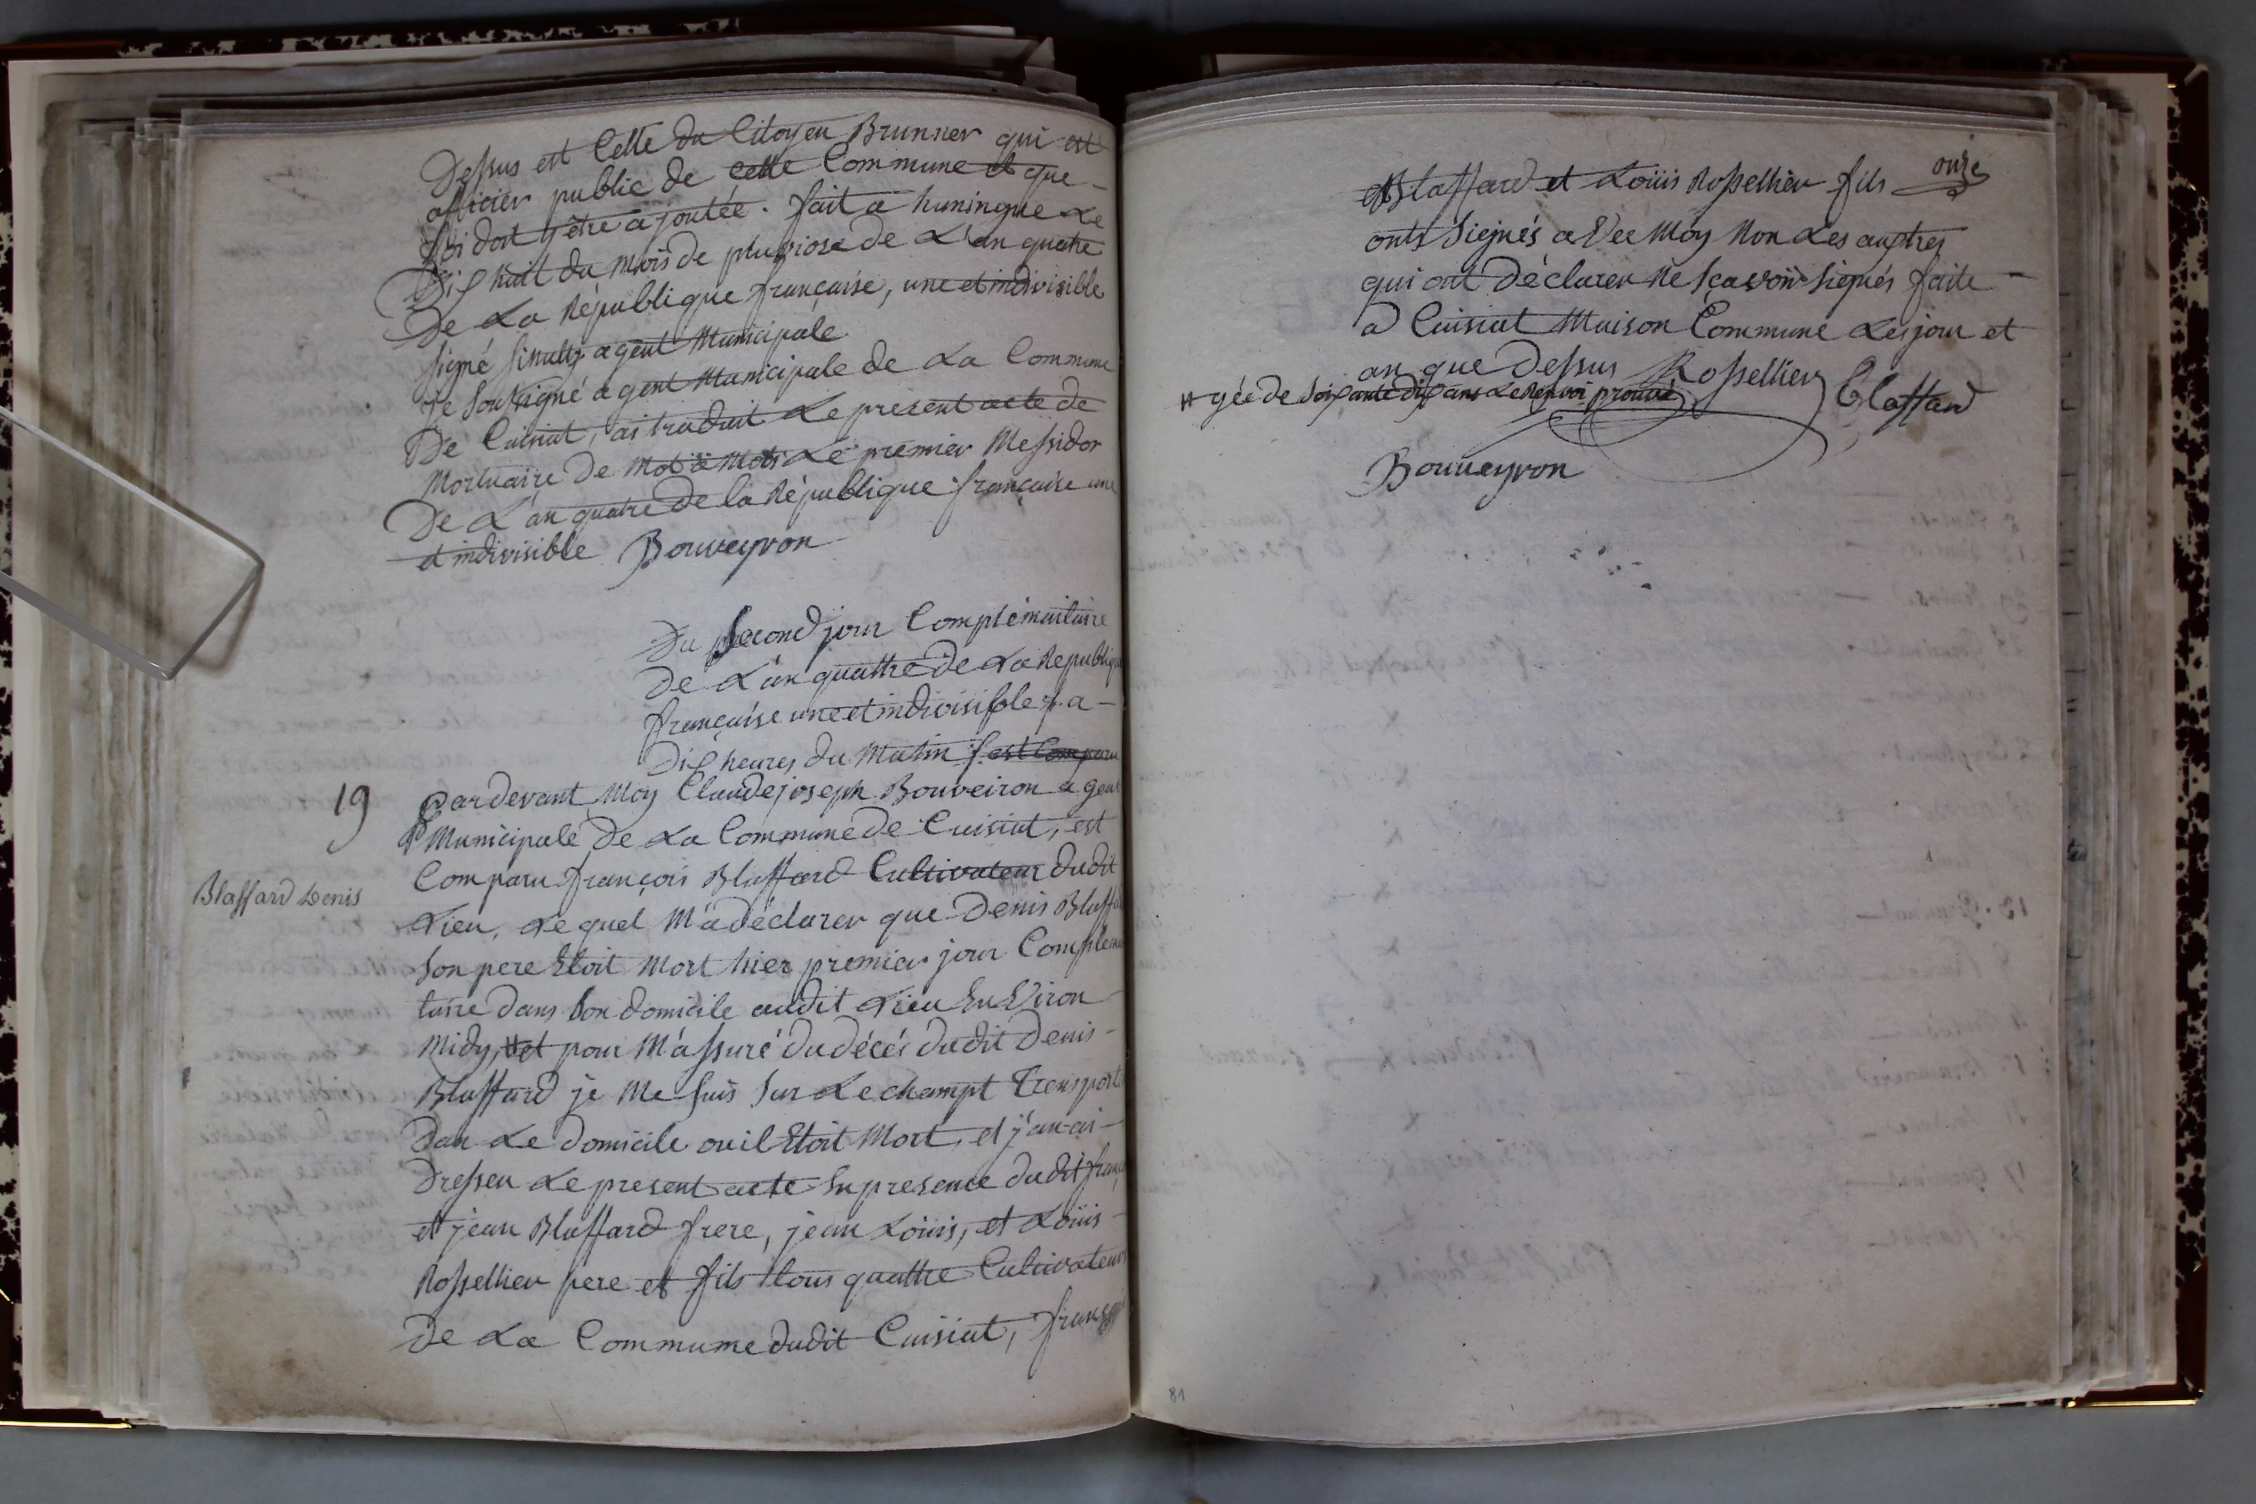 Dessus est Cette du Citoyen Brunner qui est
officier public de cette Commune et que
foi doit y être ajoutée. fait a huningue Le
Dix huit du mois de pluviose de L'an quatre
De La République française, une et indivisible
signé Schultz agent Municipale
Je Soussigné agent Municipale de La Commune
De Cuisiat, ai traduit Le present acte de
Mortuaire de Mot à Mots Le premier Messidor
De L'an quatre de la République française une
et indivisible Bouveyron
Du second jour Complémentaire
De L'an quattre de La Republique
française une et indivisible a
Dix heures du Matin s'est Comparu
19 Pardevant Moy Claude joseph Bouveiron agent
Municipale De La Commune de Cuisiat, est
Comparu françois Blassard Cultivateur dudit
Blassard Denis
Lieu, Le quel M'a déclarer que Denis Blassard
son pere Etoit Mort hier premier jour Complémen
taire dans son domicile audit Lieu EnViron
Midy, # et pour M'assuré du décés dudit Denis
Blassard je Me suis Sur Le champt Transporté
Dan Le Domicile ou il Etoit Mort, et j'an ai
Dresser Le present acte En presence dudit françois
et jean Blassard frere, jean Loüis, et Loüis
Rossellier pere et fils tous quattre Cultivateurs
De La Commume dudit Cuisiat, françois
onze
Blassard et Loüis Rossellier fils
onts Signés aVec Moy Non Les auptres
qui ont Déclarer Ne Sçavoir Signés faite
a Cuisiat Maison Commune Les jour et
an que Dessus Rossellier Blassard
# gée de Soixante dix ans Le Renvoi prouvé
Bouveyron
81